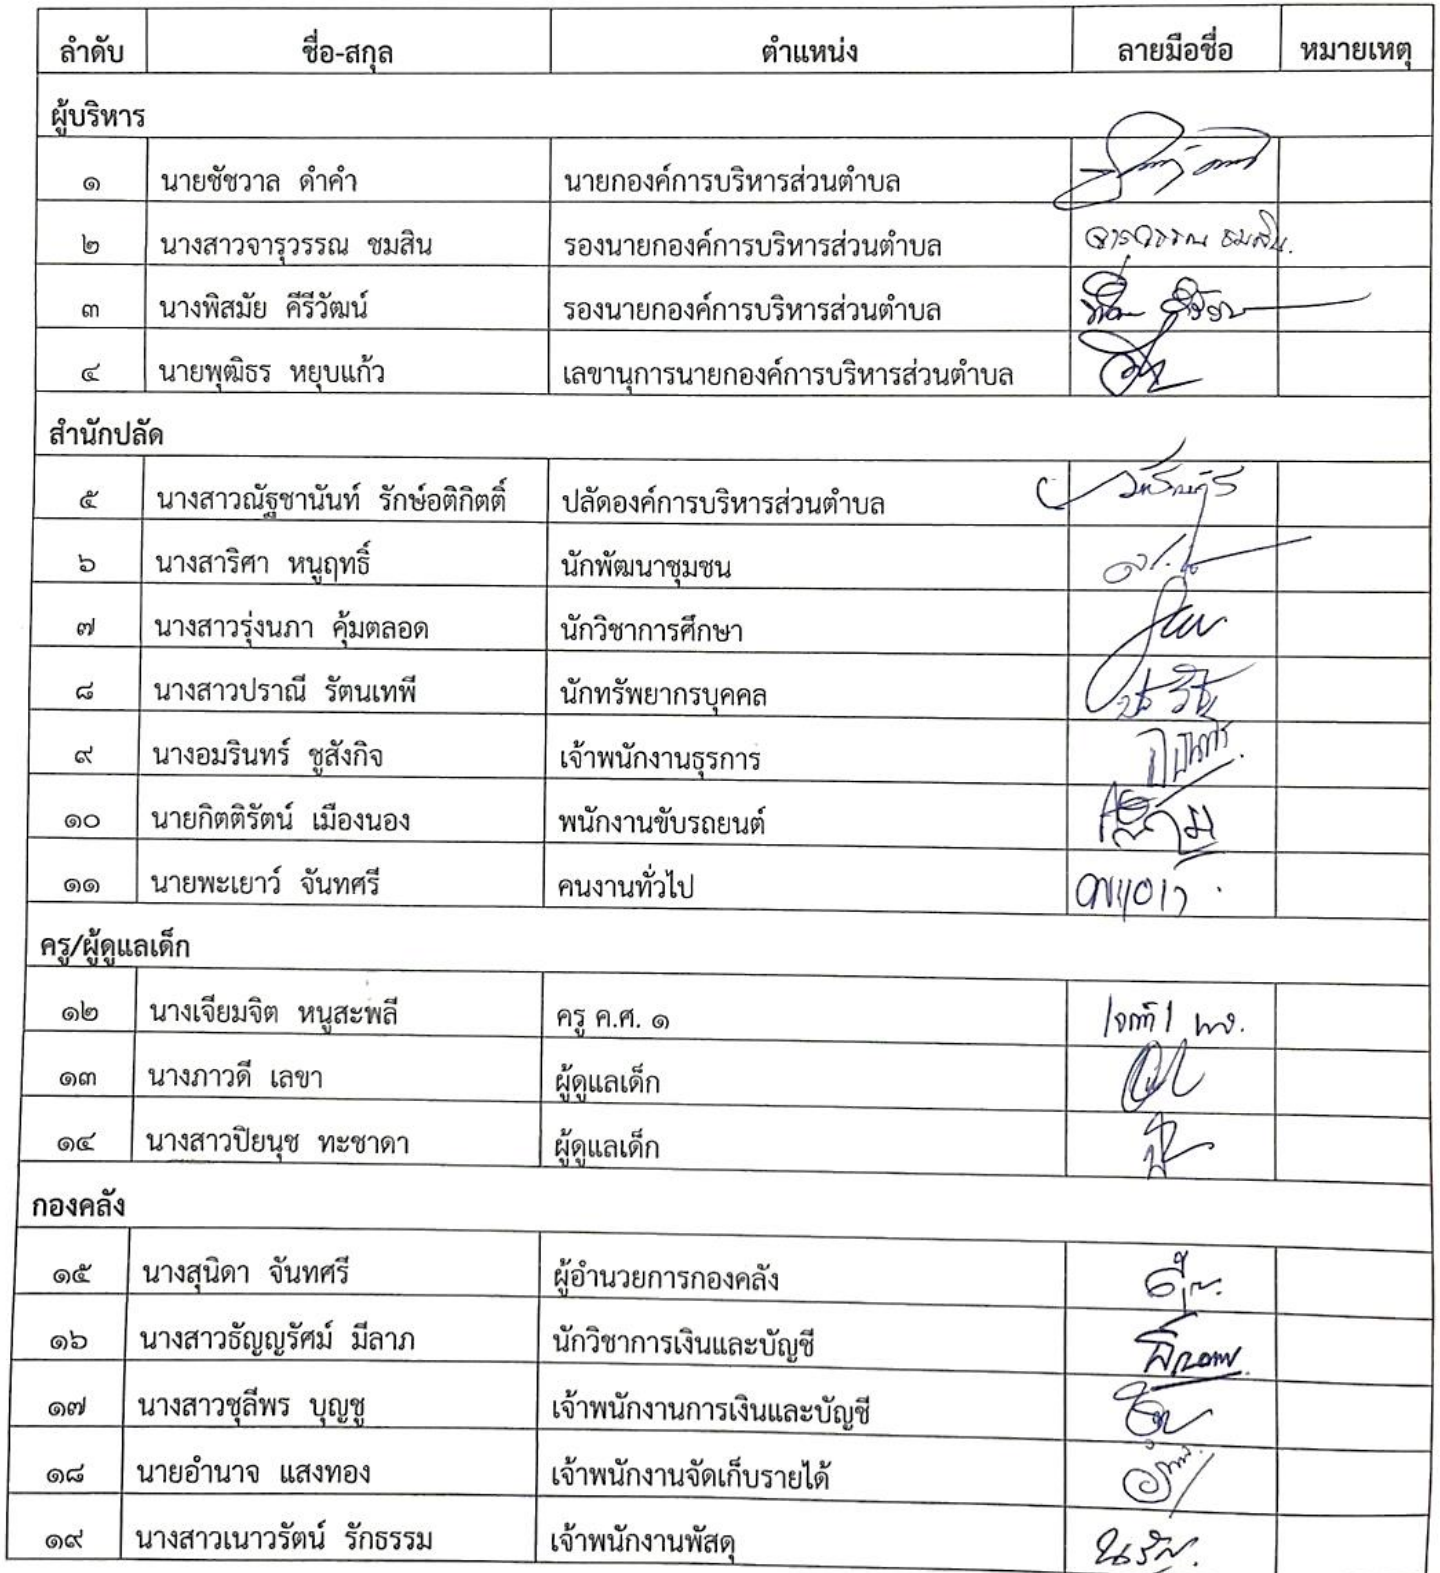 ลำดับ ชื่อ-สกุล ตำแหน่ง ลายมือชื่อ หมายเหตุ
ผู้บริหาร
๑ นายชัชวาล ดำคำ นายกองค์การบริหารส่วนตำบล
๒ นางสาวจารุวรรณ ชมสิน รองนายกองค์การบริหารส่วนตำบล จารุวรรณ ชมสิน.
๓ นางพิสมัย คีรีวัฒน์ รองนายกองค์การบริหารส่วนตำบล
๔ นายพุฒิธร หยุบแก้ว เลขานุการนายกองค์การบริหารส่วนตำบล
สำนักปลัด
๕ นางสาวณัฐชานันท์ รักษ์อติกิตติ์ ปลัดองค์การบริหารส่วนตำบล
๖ นางสาริศา หนูฤทธิ์ นักพัฒนาชุมชน
๗ นางสาวรุ่งนภา คุ้มตลอด นักวิชาการศึกษา
๘ นางสาวปราณี รัตนเทพี นักทรัพยากรบุคคล
๙ นางอมรินทร์ ชูสังกิจ เจ้าพนักงานธุรการ
๑๐ นายกิตติรัตน์ เมืองนอง พนักงานขับรถยนต์
๑๑ นายพะเยาว์ จันทศรี คนงานทั่วไป
ครู/ผู้ดูแลเด็ก
๑๒ นางเจียมจิต หนูสะพลี ครู ค.ศ. ๑
๑๓ นางภาวดี เลขา ผู้ดูแลเด็ก
๑๔ นางสาวปิยนุช ทะชาดา ผู้ดูแลเด็ก
กองคลัง
๑๕ นางสุนิดา จันทศรี ผู้อำนวยการกองคลัง
๑๖ นางสาวธัญญรัศม์ มีลาภ นักวิชาการเงินและบัญชี
๑๗ นางสาวชุลีพร บุญชู เจ้าพนักงานการเงินและบัญชี
๑๘ นายอำนาจ แสงทอง เจ้าพนักงานจัดเก็บรายได้
๑๙ นางสาวเนาวรัตน์ รักธรรม เจ้าพนักงานพัสดุ